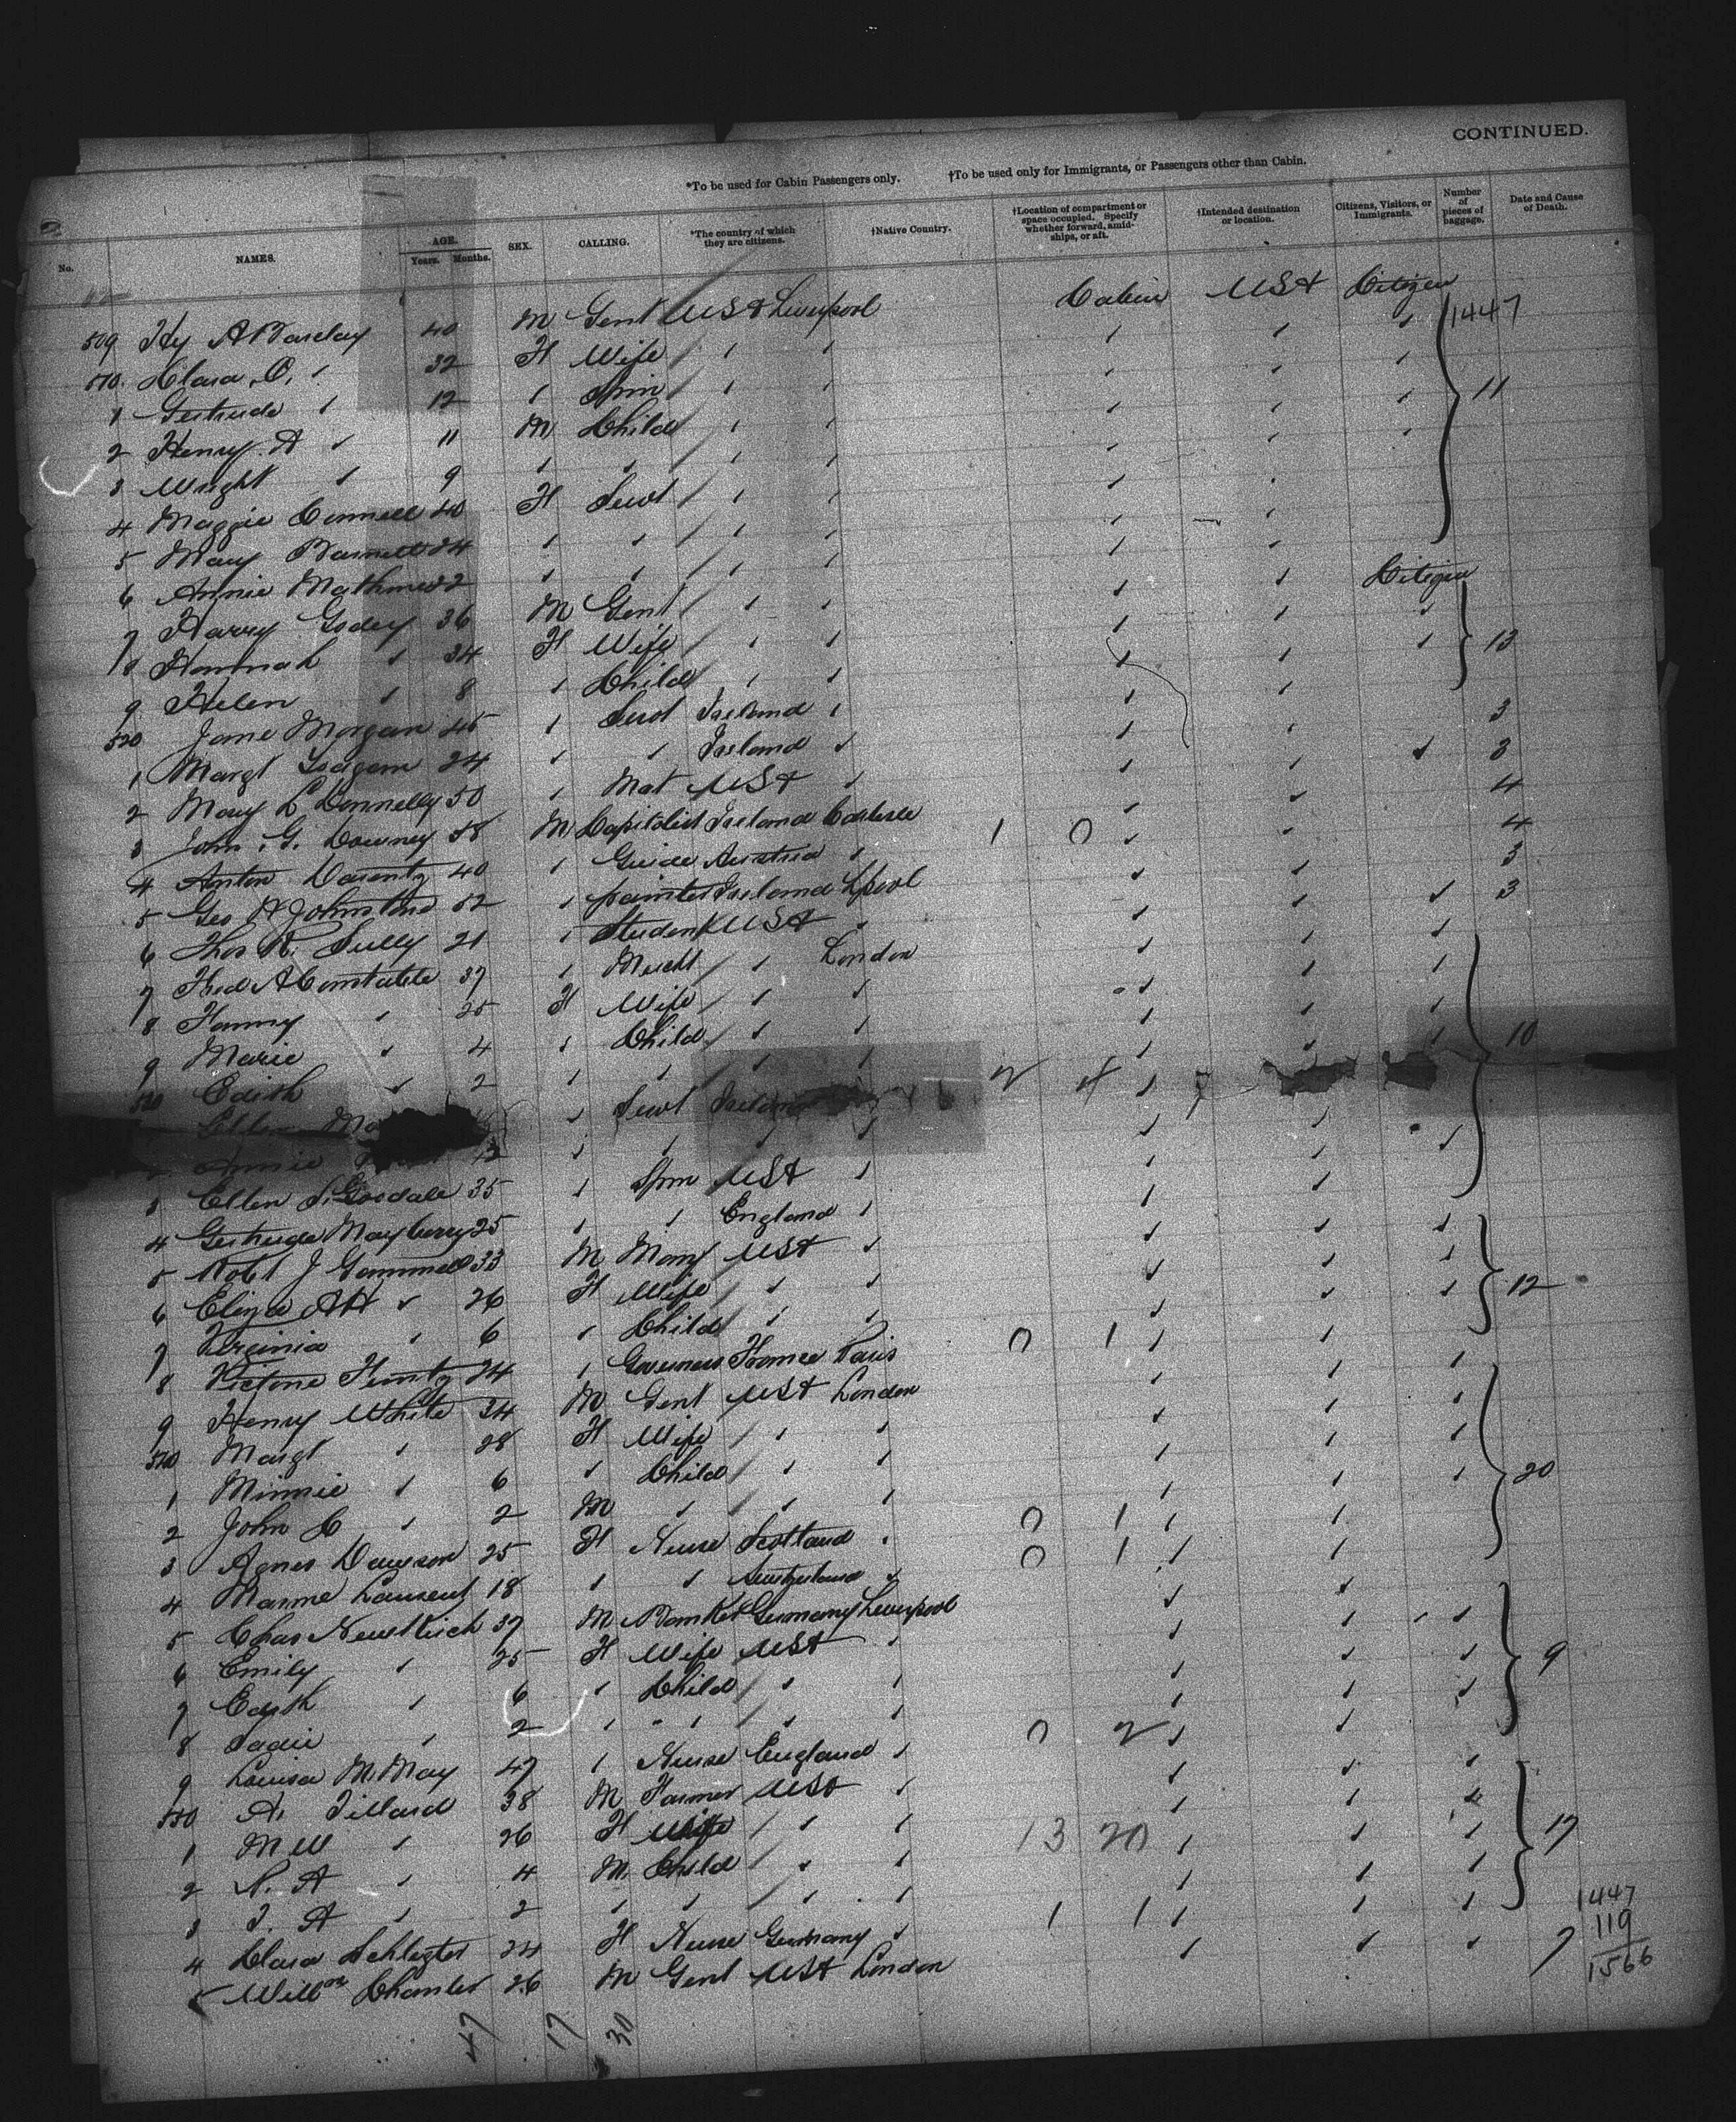 CONTINUED.
*To be used for Cabin Passengers only. †To be used only for Immigrants, or Passengers other than Cabin.
No. NAMES. AGE. Years. Months. SEX. CALLING. *The country of which they are citizens. †Native Country. †Location of compartment or space occupied. Specify whether forward, amidships, or aft. †Intended destination or location. Citizens, Visitors, or Immigrants. Number of pieces of baggage. Date and Cause of Death.
509 Hy A Barclay 40 M Gent USA Liverpool Cabin USA Citizen 1447
510. Clara O, " 32 F Wife " "
1 Gertrude " 12 " Spin " "
2 Henry A " 11 M Child " " 11
3 Wright " 9 " " " "
4 Maggie Connell 40 F Servt " "
5 Mary Barnett 24 " " " "
6 Annie 22 " " " " Citizen
7 Harry Godey 36 M Gent " "
8 Hannah " 34 F Wife " " 13
9 Helen " 8 " Child " "
520 Jane Morgan 45 " Servt Ireland " 3
1 Margt 24 " " Ireland " 3
2 Mary L Donnelly 50 " Mat USA " 4
3 John G. Downey 58 M Capitalist Ireland 1 0 " 4
4 Anton 40 " Guide Austria " 3
5 Geo H Johnstone 52 " painter Ireland Lpool 3
6 Thos R. Sully 21 " Student USA "
7 Fred A Constable 37 " Mercht " London
8 Fanny " 25 F Wife " "
9 Marie " 4 " Child " " 10
530 Edith " 2 " " " "
Ellen " Servt Ireland
Annie " " " "
3 Ellen S. Goodale 35 " Spin USA "
4 Gertrude Mayberry 25 " " England "
5 Robt J Gammell 33 M Manf USA "
6 Eliza AH " 26 F Wife " " 12
7 Virginia " 6 " Child " "
8 Victorie 24 " Governess France Paris 0 1
9 Henry White 34 M Gent USA London
540 Margt " 28 F Wife " "
1 Minnie " 6 " Child " " 20
2 John C " 2 M " " "
3 Agnes Dawson 25 F Nurse Scotland " 0 1
4 18 " " Switzerland " 0 1
5 Chas Newkirch 37 M Banker Germany Liverpool
6 Emily " 25 F Wife USA " 9
7 Edith " 6 " Child " "
8 Sadie " 2 " " " "
9 Louisa M. May 47 " Nurse England " 0 2
550 A. Tillard 38 M Farmer USA "
1 M W " 26 F Wife " " 13 20 17
2 N. A " 4 M Child " "
3 T. A " 2 " " " "
4 Clara Schlegter 24 F Nurse Germany " 1 1
5 Willm 26 M Gent USA London 7
1447
119
1566
47 17 30